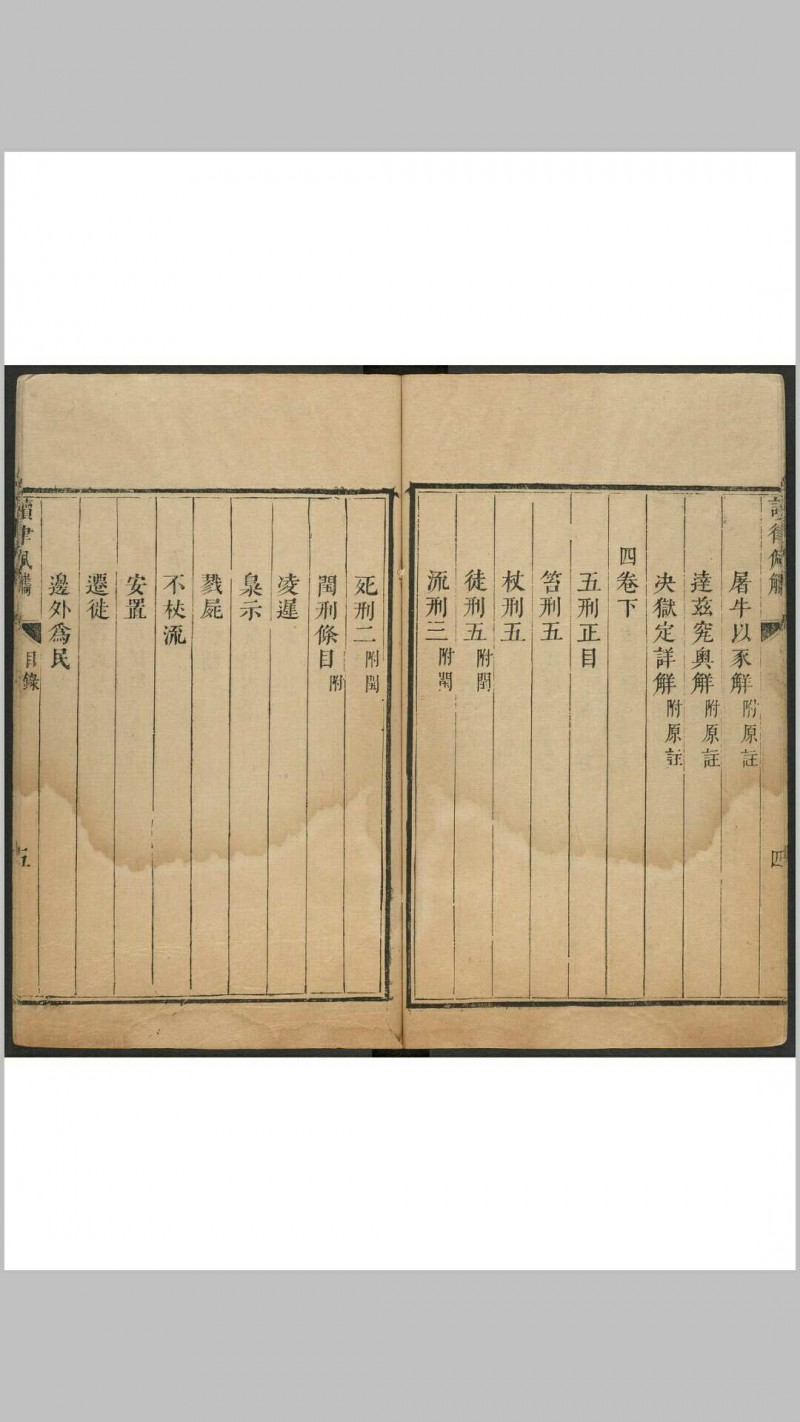 屠牛以豕解附原註
達茲究輿解附原註
决獄定詳解附原註
四卷下
五刑正目
笞刑五
杖刑五
徒刑五附閏
流刑三附閏
四
死刑二附閏
閏刑條目附
凌遲
梟示
戮屍
不杖流
安置
遷徙
邊外爲民
讀律佩觿
目錄
五